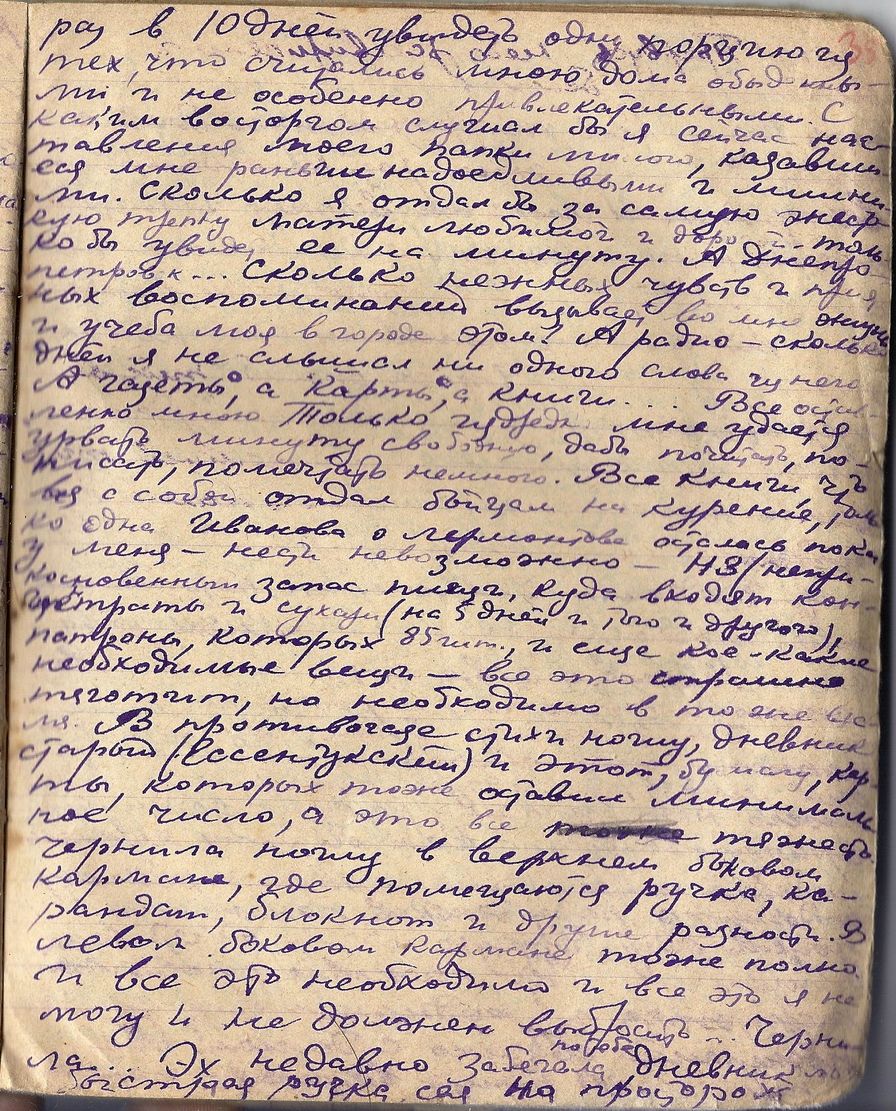 раз в 10 дней увидеть одну порцию из
тех, что считались мною дома обыденны-
ми и не особенно привлекательными. С
каким восторгом слушал бы я сейчас нас-
тавления моего папки милого, казавши
еся мне раньше надоедливыми и лишни
ми. Сколько я отдал бы за самую жесто
кую трепку матери любимой и дорогой толь
ко бы увидеть ее на минуту. А Днепро
петровск... Сколько нежных чувств и прия
ных воспоминаний вызывает во мне жизнь
и учеба моя в городе этом! А радио – сколько
дней я не слышал ни одного слова из него
А газеты, а карты, а книги... Все остав-
ленно мною Только изредка мне удается
урвать минуту свободную, дабы почитать, по-
писать, помечтать немного. Все книги, что
вез с собой отдал бойцам на курение, толь
ко одна Иванова о Лермонтове осталась пока
у меня – нести невозможно – НЗ (непри-
косновенный запас пищи, куда входят кон-
центраты и сухари (на 5 дней и того и другого),
патроны, которых 85 шт., и еще кое-какие
необходимые вещи – все это страшно
тяготит, но необходимо в то же вре
мя. В противогазе стихи ношу, дневник
старый (Ессентукский) и этот, бумагу, кар-
ты, которых тоже оставил минималь
ное число, а это все тяжесть.
Чернила ношу в верхнем боковом
кармане, где помещаются ручка, ка-
рандаш, блокнот и другие разности. В
левом боковом кармане тоже полно
и все это необходимо и все это я не
могу и не должен выбросить... Черни-
ла... Эх недавно забегала по тебе дневник
быстрая ручка сия на просторах